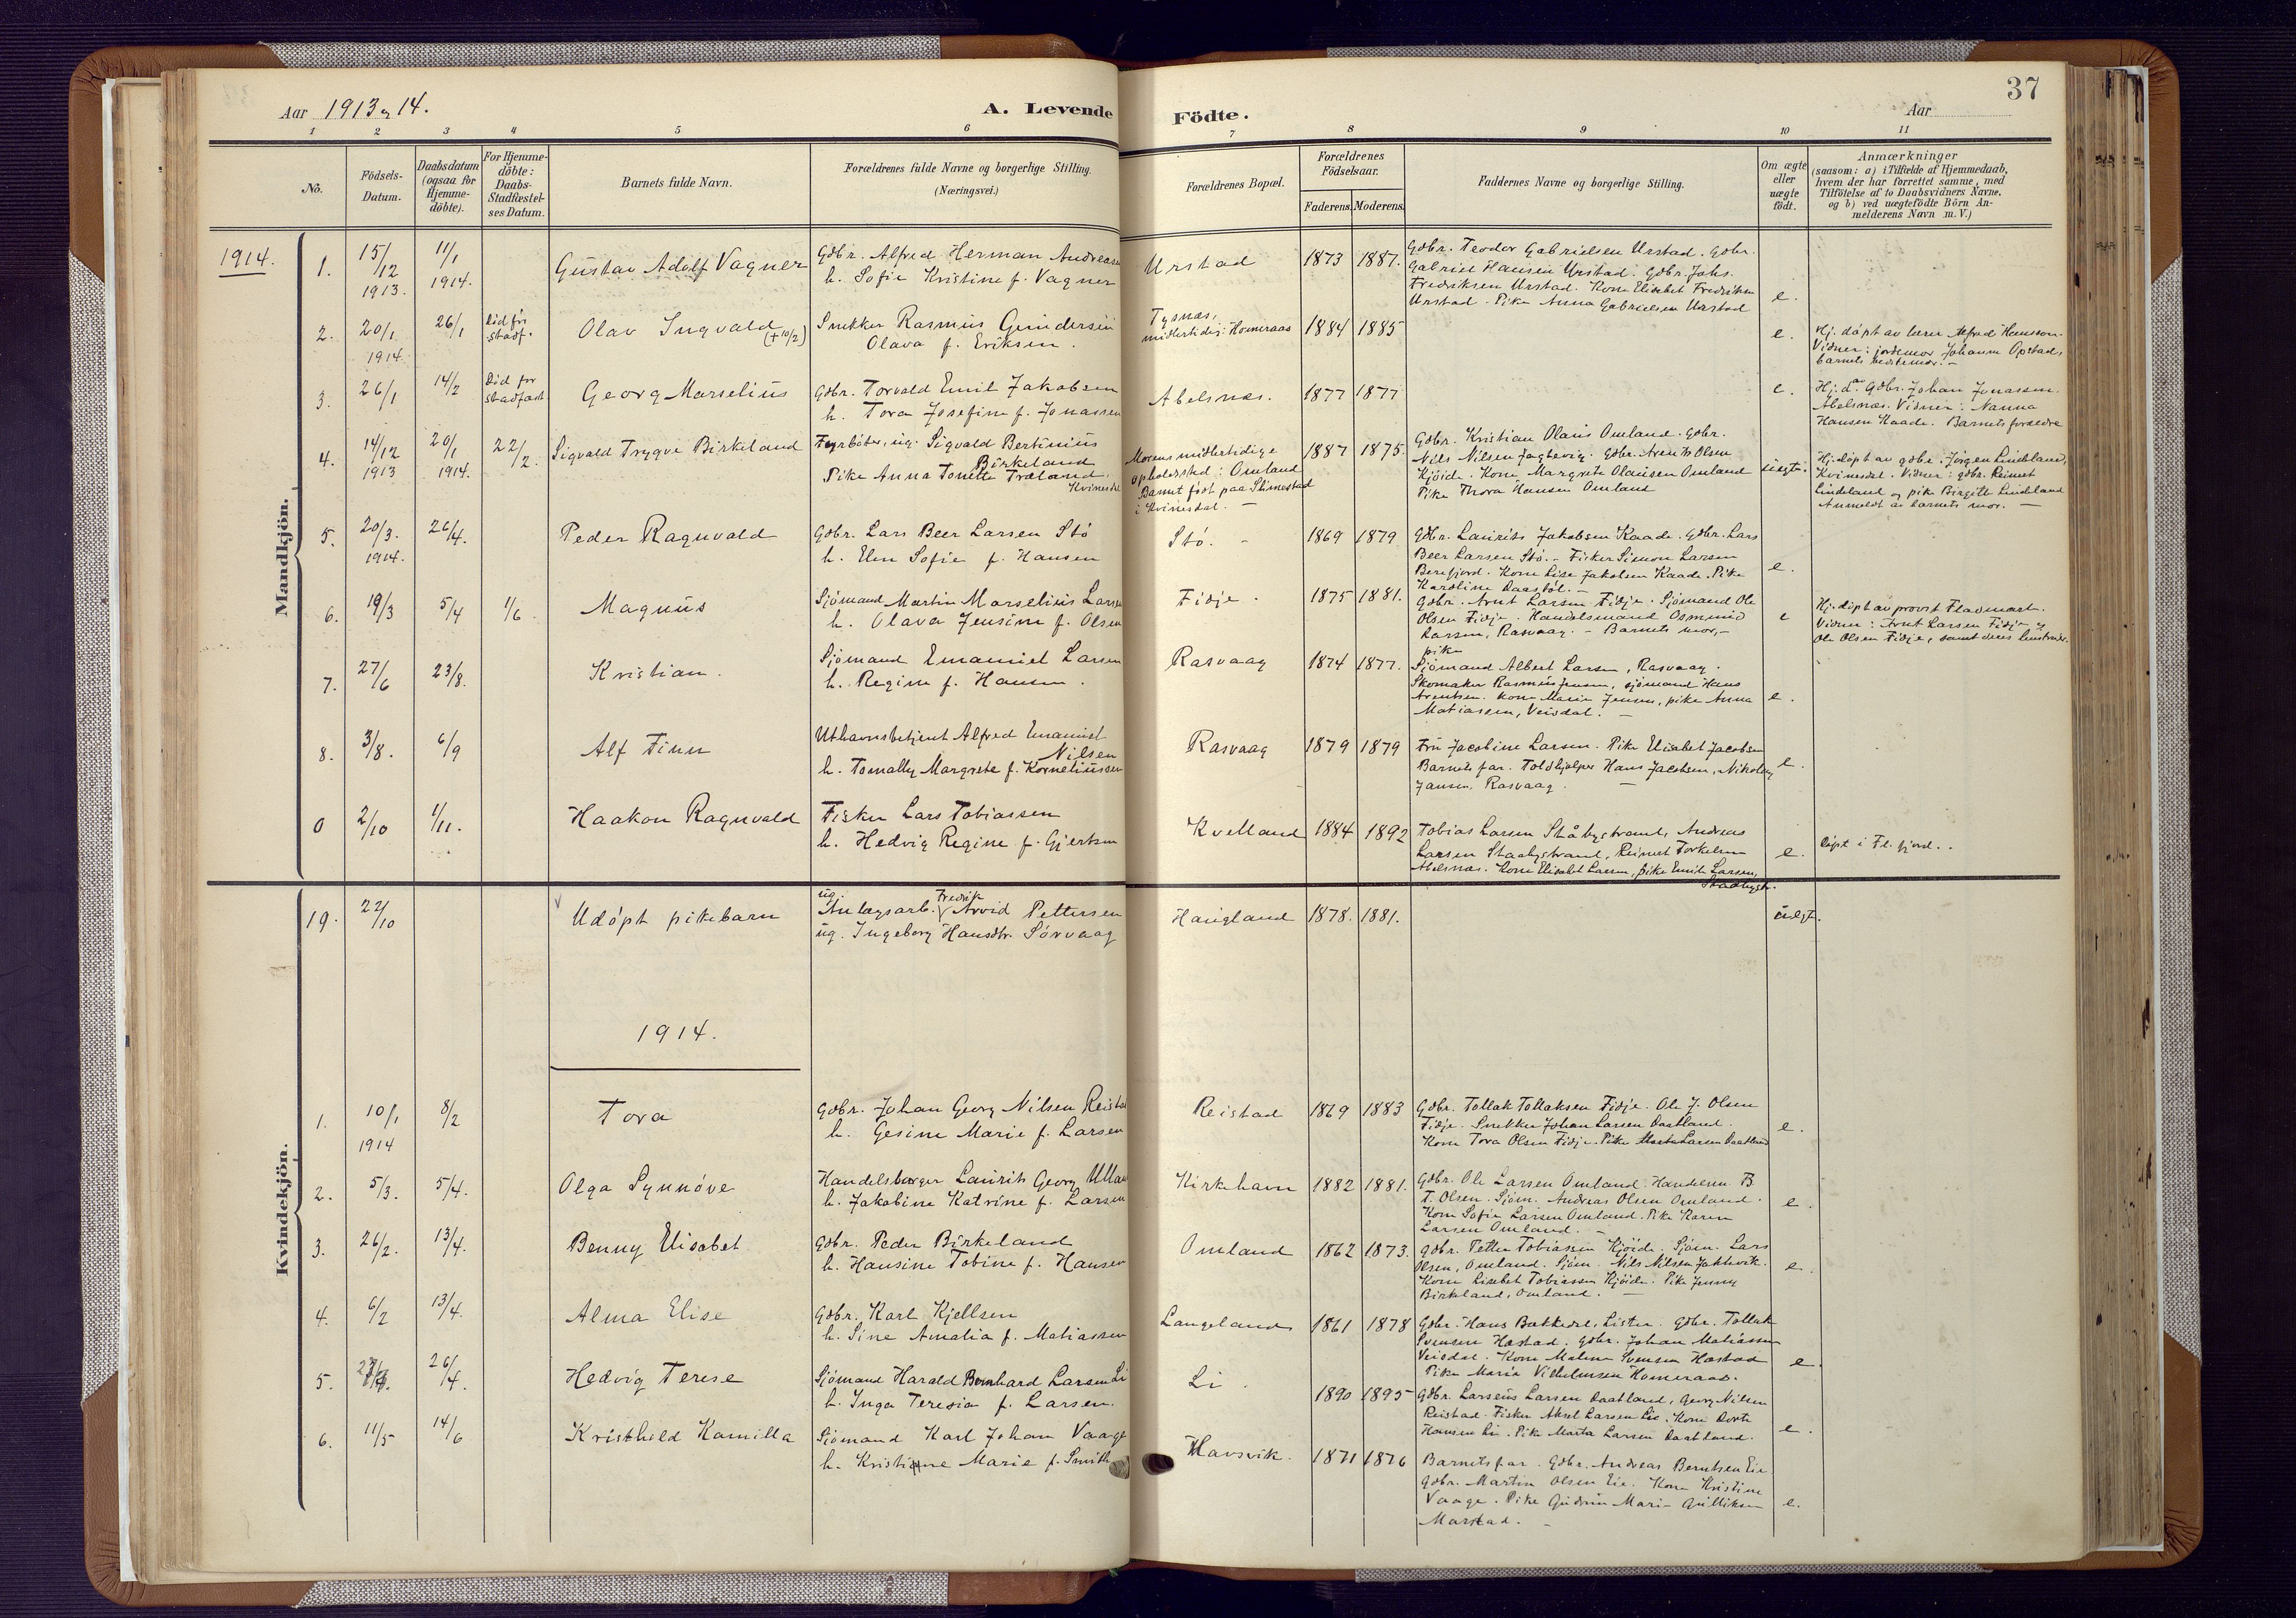 37
Aar 1913 og 14.
A. Levende Födte.
Aar
1 2 3 4 5 6 7 8 9 10 11
No.
Födsels-
Datum.
Daabsdatum
(ogsaa for
Hjemme-
döbte).
For Hjemme-
döbte:
Daabs-
Stadfæstel-
ses Datum.
Barnets fulde Navn.
Forældrenes fulde Navne og borgerlige Stilling.
(Næringsvei.)
Forældrenes Bopæl.
Forældrenes
Födselsaar.
Faderens. Moderens.
Faddernes Navne og borgerlige Stilling.
Om ægte
eller
uægte
födt.
Anmærkninger
(saasom: a) i Tilfælde af Hjemmedaab,
hvem der har forrettet samme, med
Tilföielse af to Daabsvidners Navne,
og b) ved uægtefödte Börn An-
melderens Navn m. V.)
Mandkjön.
1914.
1.
15/12
1913.
11/1
1914.
Gustav Adolf Vagner
Gdbr. Alfred Herman Andreasen
h. Sofie Kristine f. Vagner
Urstad
1873 1887.
Gdbr. Teodor Gabrielsen Urstad. Gdbr.
Gabriel Hansen Urstad. Gdbr. Johs.
Fredriksen Urstad. Kone Elisabet Fredriksen
Urstad. Pike Anna Gabrielsen Urstad
e.
2.
20/1
1914.
26/1
Död för
stadf.
Olav Ingvald
(+ 10/2)
Snekker Rasmus Gundersen
Olava f. Eriksen.
Tysnæs,
midlertidig: Homeraas
1884 1885
e.
Hj. döpt av lærer Alfred Hansson.
Vidner: jordemor Johanne Opstad,
barnets bedstemor.
3.
26/1
14/2
Död for
stadfæst
Georg Marselius
Gdbr. Torvald Emil Jakobsen
h. Tora Josefine f. Jonassen
Abelsnæs.
1877 1877
e.
Hj. d. av Gdbr. Johan Jonassen
Abelsnæs. Vidner: Nanna
Hansen Kaade. Barnets forældre
4.
14/12
1913
20/1
1914.
22/2.
Sigvald Trygve Birkeland
Fyrböter, ug. Sigvald Bertinius
Birkeland
Pike Anna Tonette Træland
Kvinesdal
Morens midlertidige
opholdssted: Omland
Barnet födt paa Slimestad
i Kvinesdal.
1887 1875.
Gdbr. Kristian Olaus Omland. Gdbr.
Nils Nilsen Jagtevig. Gdbr. Arents Olsen
Kjöide. Kone Margrete Olausen Omland
Pike Thora Hansen Omland
uegt.
Hj. döpt av gdbr. Jörgen Lindeland,
Kvinesdal. Vidner: gdbr. Reinert
Lindeland og pike Birgitte Lindeland
Anmeldt av barnets mor.
5.
20/3.
1914.
26/4.
Peder Ragnvald
Gdbr. Lars Beer Larsen Stö
h. Elen Sofie f. Hansen
Stö.
1869 1879
Gdbr. Laurits Jakobsen Kaade. Gdbr. Lars
Beer Larsen Stö. Fisker Simon Larsen
Berefjord. Kone Lise Jakobsen Kaade. Pike
Karoline Daastöl.
e.
6.
19/3
5/4
1/6
Magnus
Sjömand Martin Marselius Larsen
h. Olava Jensine f. Olsen
Fidje.
1875 1881.
Gdbr. Arnt Larsen Fidje. Sjömand Ole
Olsen Fidje. Handelsmand Osmund
Larsen, Rasvaag. Barnets mor,
pike
e
Hj. döpt av provst Fladmark.
Vidner: Arnt Larsen Fidje og
Ole Olsen Fidje, samt deres hustruer.
7.
27/6
23/8.
Kristian.
Sjömand Emanuel Larsen
h. Regine f. Hansen.
Rasvaag
1874 1877.
Sjömand Albert Larsen, Rasvaag.
Skomaker Rasmus Jensen, sjömand Hans
Arentsen. kone Marie Jensen, pike Anna
Matiassen, Veisdal.
e.
8.
3/8.
6/9
Alf Finn
Uthavnsbetjent Alfred Emanuel
Nilsen
h. Tomally Margrete f. Korneliussen
Rasvaag
1879 1879
Fru Jacobine Larsen. Pike Elisabet Jacobsen
Barnets far. Toldhjelper Hans Jacobsen, Nikolay
Jansen, Rasvaag.
e.
0
2/10
1/11.
Haakon Ragnvald
Fisker Lars Tobiassen
h. Hedvig Regine f. Gjertsen
Kvelland
1884 1892
Tobias Larsen Ståbystrand, Andreas
Larsen Staabystrand, Reinert Torkelsen
Abelsnæs. Kone Elisabet Larsen, pike Emilie Larsen,
Staabystr.
e.
döpt i Fl. fjord.
Kvindekjön.
19.
22/10
Udöpt pikebarn
ug. Fredrik
Anlægsarb. Arvid Pettersen
ug. Ingeborg Hansdtr. Sörvaag
Haugland
1878. 1881.
uegt.
1914.
1.
10/1
1914
8/2
Tora
Gdbr. Johan Georg Nilsen Reistad
h. Gesine Marie f. Larsen
Reistad
1869 1883
Gdbr. Tollak Tollaksen Fidje. Ole J. Olsen
Fidje. Snekker Johan Larsen Daatland.
Kone Tora Olsen Fidje. Pike Marta Larsen Daatland
e.
2.
5/3.
5/4.
Olga Synnöve
Handelsborger Laurits Georg Ulland
h. Jakobine Katrine f. Larsen
Kirkehavn
1882 1881.
Gdbr. Ole Larsen Omland. Handelsm. B.
T. Olsen. Sjöm. Andreas Olsen Omland.
Kone Sofie Larsen Omland. Pike Karen
Larsen Omland.
e.
3.
26/2.
13/4.
Benny Elisabet
Gdbr. Peder Birkeland
h. Hansine Tobine f. Hansen
Omland
1862 1873.
Gdbr. Petter Tobiassen Kjöide. Sjöm. Lars
Olsen, Omland. Sjöm. Nils Nilsen Jaktevik.
Kone Lisebet Tobiassen Kjöide. Pike Jenny
Birkeland, Omland.
e.
4.
6/2
13/4.
Alma Elise
Gdbr. Karl Kjellsen
h. Sine Amalia f. Matiassen
Langeland
1861 1878
Gdbr. Hans Bakkedal, Lister. Gdbr. Tollak
Svensen Hæstad. Gdbr. Johan Matiassen
Veisdal. Kone Malene Svensen Hæstad
Pike Maria Vilhelmsen Homeraas.
e.
5.
26/4.
Hedvig Terese
Sjömand Harald Bernhard Larsen Li
h. Inga Teresia f. Larsen.
Li.
1890 1895
Gdbr. Larseus Larsen Daatland, Georg Nilsen
Reistad. Fisker Aksel Larsen Lie. Kone Dorte
Hansen Li. Pike Marta Larsen Daatland.
e.
6.
11/5
14/6
Kristhild Kamilla
Sjömand Karl Johan Vaage
h. Kristiane Marie f. Smith
Havsvik.
1871 1876
Barnets far. Gdbr. Andreas Berntsen Eie
Gdbr. Martin Olsen Eie. Kone Kristine
Vaage. Pike Gudrun Marie Gulliksen
Marstad.
e.